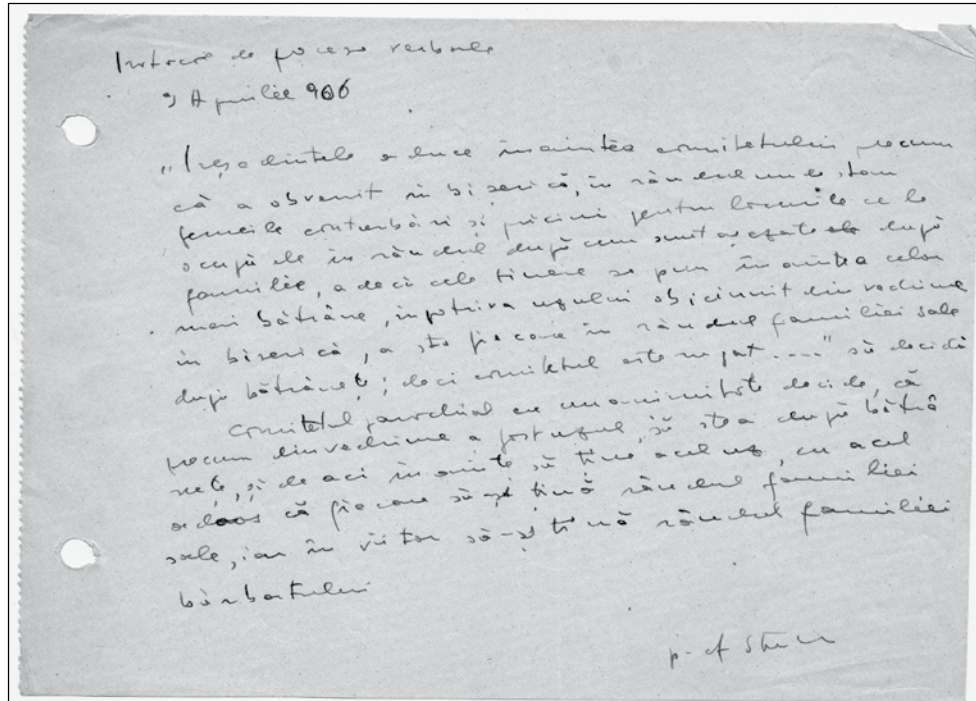 de procese verbale
9 Aprilie 906
"Președintele aduce înaintea comitetului precum
că a obvenit în biserică, în rândul unde stau
femeile conturbări și pricini pentru locurile ce le
ocupă ele în rândul după cum sunt așezate ele după
familie, adecă cele tinere se pun înaintea celor
mai bătrâne, împotriva uzului obicinuit din vechime
în biserică, a sta fiecare în rândul familiei sale
după bătrânețe; deci comitetul este rugat ...." să decidă
Comitetul parochial cu unanimitate decide, că
precum din vechime a fost uzul, să stea după bătrâ
nețe, și de aci înainte să ține acel uz, cu acel
adaos că fiecare să-și țină rândul familiei
sale, iar în viitor să-și țină rândul familiei
bărbatului